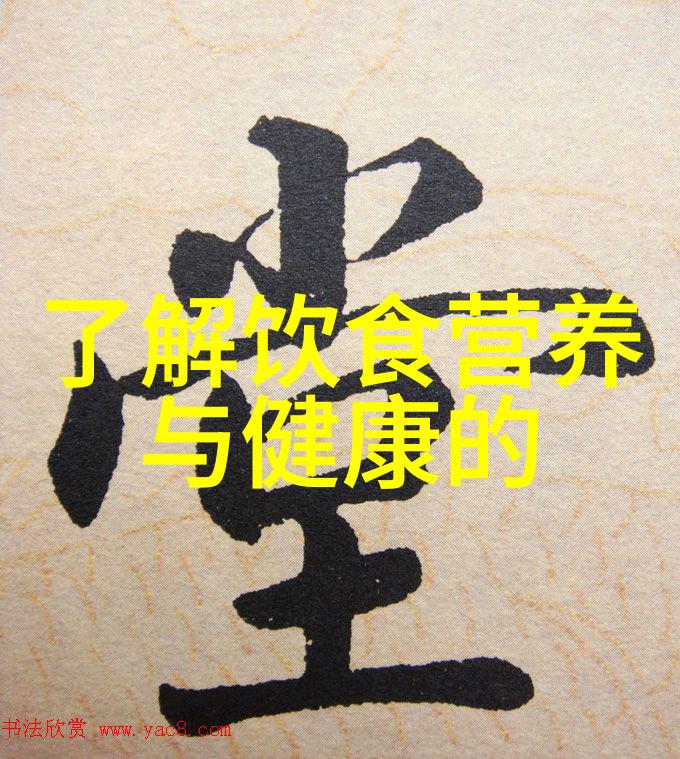 堂
了解饮食营养
与健康的
书法欣赏 www.yac8.com